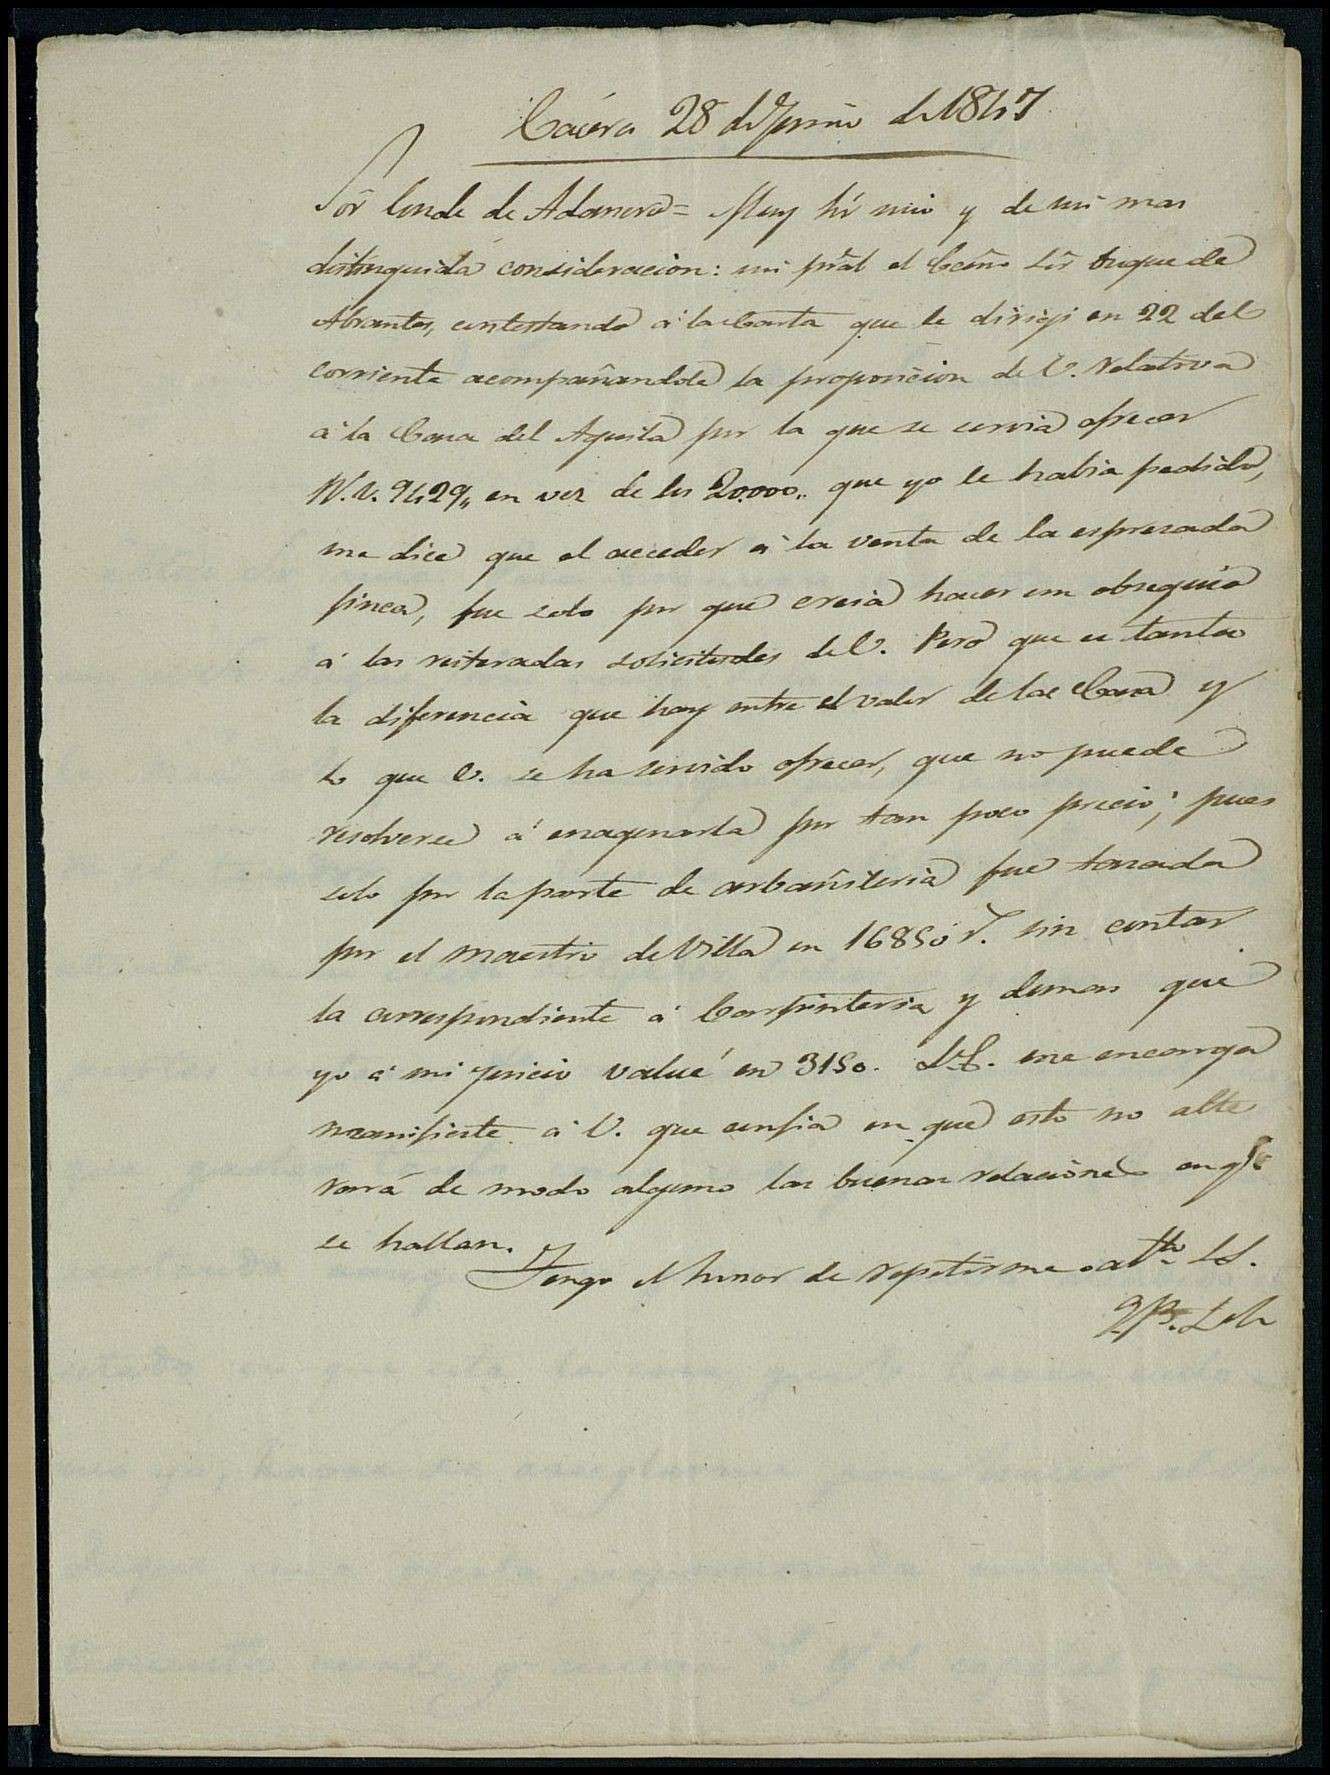 Cáceres 28 de Junio de 1847
Sor Conde de Adanero = Muy Sr mio y de mi mas
distinguida consideracion: mi pral el Ecmo Sor Duque de
Abrantes, contestando á la Carta que le dirigi en 22 del
corriente acompañandole la proposicion de V. relativa
á la Casa del Aguila por la que se servia ofrecer
R.V. 9429,, en vez de los 20.000,, que yo le habia pedido,
me dice que el acceder á la venta de la espresada
finca, fue solo por que creia hacer un obsequio
á las reiteradas solicitudes de V. Pero que es tanta
la diferencia que hay entre el valor de la Casa y
lo que V. se ha servido ofrecer, que no puede
resolverse á enagenarla por tan poco precio; pues
solo por la parte de arbañileria fue tasada
por el maestro de Villa en 16850 r. sin contar
la correspondiente á Carpinteria y demas que
yo á mi juicio valué en 3150. S.E. me encarga
manifieste á V. que confia en que esto no alte
rará de modo alguno las buenas relaciones en qe
se hallan.
Tengo el honor de repetirme atto. S.S.
Q.B.S.M.